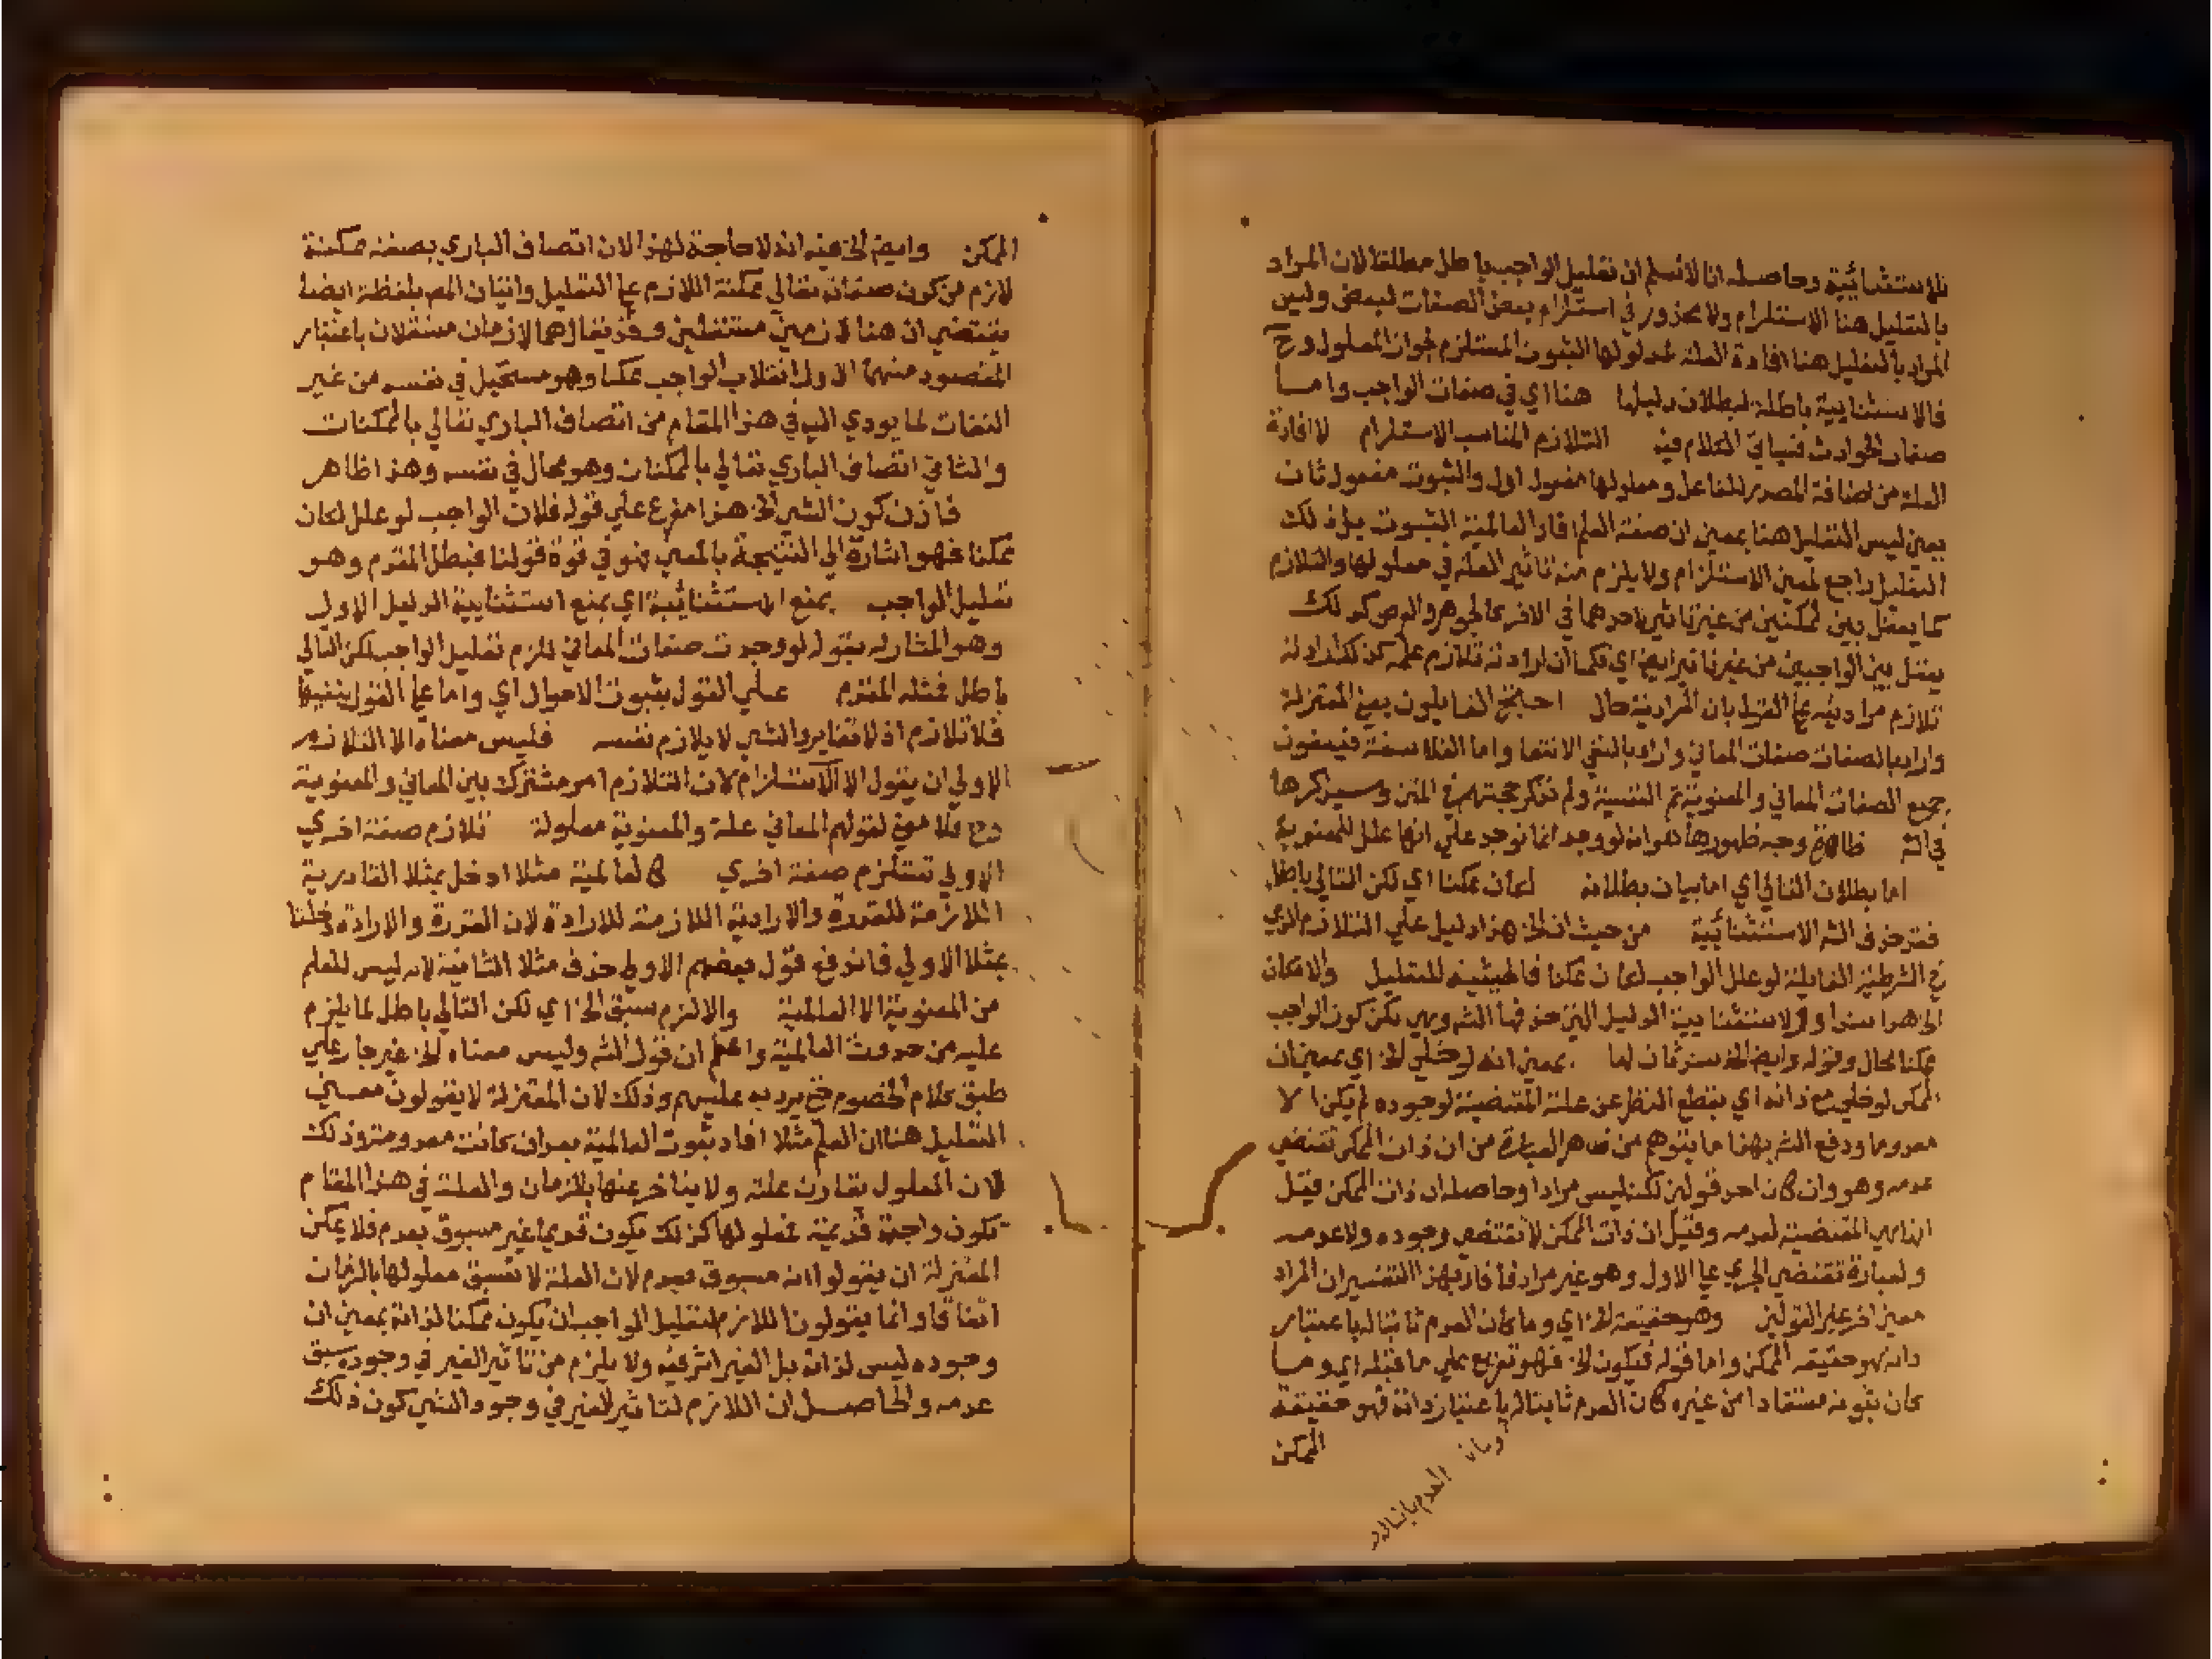 للاستثنائية وحاصله انا لا نسلم ان تعليل الواجب باطل مطلقا لان المراد
بالتعليل هنا الاستلزام ولا محذور في استلزام بعض الصفات لبعض وليس
المراد بالتعليل هنا افادة العلة مدلولها الثبوت المستلزم لجواز المعلول وح
فالاستثنايية باطلة لبطلان دليلها هنا اي في صفات الواجب واما
صفات الحوادث فسياتي الكلام فيه التلازم المناسب الاستلزام لا افادة
العلة من اضافة المصدر للفاعل ومعلولها مفعول اول والثبوت مفعول ثان
يعني ليس التعليل هنا بمعنى ان صفة العلم افاد العالمية الثبوت بل ذلك
التعليل راجع لمعنى الاستلزام ولا يلزم منه تاثير العلة في معلولها والتلازم
كما يعقل بين ممكنين من غير تاثير لاحدهما في الاخر كالجوهر والعرض كذلك
يعقل بين الواجبين من غير تاثير ايضا اي فكما ان ارادته تلازم علمه كذلك ارادته
تلازم مراديته على القول بان المرادية حال احتج القايلون يعني المعتزلة
وارادبالصفات صفات المعاني واراد بالنفي الانتفا واما الفلاسفة فينفون
جميع الصفات المعاني والمعنوية ثم النفسية ولم تذكر حجتهم في المتن وسيذكرها
في الش ظاهرة وجه ظهورها هو انه لو وجد انما توجد على انها علل للمعنوية
اما بطلان التالي اي اما بيان بطلانه لكان ممكنا اي لكن التالي باطل
فقد حذف الش الاستثنائية من حيث انه الخ هذا دليل على التلازم الذي
في الشرطية القايلة لو علل الواجب لكان ممكنا فالحيثية للتعليل والامكان
الخ هذا سند اول لاستثنايية الدليل التي حذفها الش وهي لكن كون الواجب
ممكنا محال وقوله وايضا الخ سند ثان لها بمعنى انه لو خلي الخ اي بمعنى ان
الممكن لو خلي مع ذاته اي بقطع النظر عن علته المقتضية لوجوده لم يكن الا
معدوما ودفع الش بهذا ما يتوهم من ظاهر العبارة من ان ذات الممكن تقتضي
عدمه وهو وان كان احد قولين لكنه ليس مرادا وحاصله ان ذات الممكن قيل
انها هي المقتضية لعدمه وقيل ان ذات الممكن لا تقتضي وجوده ولا عدمه
والعبارة تقتضي الجري على الاول وهو غير مراد فافاد بهذا التفسير ان المراد
معنى اخر غير القولين وهو حقيقة الخ اي وما كان العدم ثابتا له باعتبار
ذاته هو حقيقة الممكن واما قوله فيكون الخ فهو تفريع على ما قبله اي وما
كان ثبوته مستفادا من غيره كان العدم ثابتا له باعتبار ذاته فهو حقيقة
الممكن
الممكن وايضا الخ فيه انه لا حاجة لهذا لان اتصاف الباري بصفة ممكنة
لازم من كون صفاته تعالى ممكنة اللازم على التعليل واتيان المص بلفظة ايضا
يقتضي ان هنا لازمين مستقلين وقد يقال هما لازمان مستقلان باعتبار
المقصود منهما الاول انقلاب الواجب ممكنا وهو مستحيل في نفسه من غير
التفات لما يودي اليه في هذا المقام من اتصاف الباري تعالى بالممكنات
والثاني اتصاف الباري تعالى بالممكنات وهو محال في نفسه وهذا ظاهر
فاذن كون الشي الخ هذا مفرع على قوله فلان الواجب لو علل لكان
ممكنا فهو اشارة الى النتيجة بالمعنى فهو في قوة قولنا فبطل المقدم وهو
تعليل الواجب بمنع الاستثنائية اي بمنع استثنايية الدليل الاول
وهو المشار له بقوله لو وجدت صفات المعاني للزم تعليل الواجب لكن التالي
باطل فمثله المقدم على القول بثبوت الاحوال اي واما على القول بنفيها
فلا تلازم اذ لا تغاير والشي لا يلازم نفسه فليس معناه الا التلازم
الاولى ان يقول الا الاستلزام لان التلازم امر مشترك بين المعاني والمعنوية
وح فلا معنى لقولهم المعاني علة والمعنوية معلولة تلازم صفة اخرى
الاولى تستلزم صفة اخرى كالعالمية مثلا ادخل بمثلا القادرية
اللازمة للقدرة والارادية اللازمة للارادة لان القدرة والارادة دخلتا
بمثلا الاولى فاندفع قول بعضهم الاولى حذف مثلا الثانية لانه ليس للعلم
من المعنوية الا العالمية والا لزم سبق الخ اي لكن التالي باطل لما يلزم
عليه من حدوث العالمية واعلم ان قول الش وليس معناه الخ غير جار على
طبق كلام الخصوم حتى يرد به عليهم وذلك لان المعتزلة لا يقولون معنى
التعليل هنا ان العلم مثلا افاد ثبوت العالمية بعد ان كانت معدومة وذلك
لان المعلول يقارن علته ولا يتاخر عنها بالزمان والعلة في هذا المقام
تكون واجبة قديمة فمعلولها كذلك يكون قديما غير مسبوق بعدم فلا يمكن
المعتزلة ان يقولوا انه مسبوق بعدم لان العلة لا تسبق معلولها بالزمان
اتفاقا وانما يقولون اللازم لتعليل الواجب ان يكون ممكنا لذاته بمعنى ان
وجوده ليس لذاته بل الغير اثر فيه ولا يلزم من تاثير الغير في وجوده سبق
عدمه والحاصل ان اللازم لتاثير الغير في وجود الشي كون ذلك